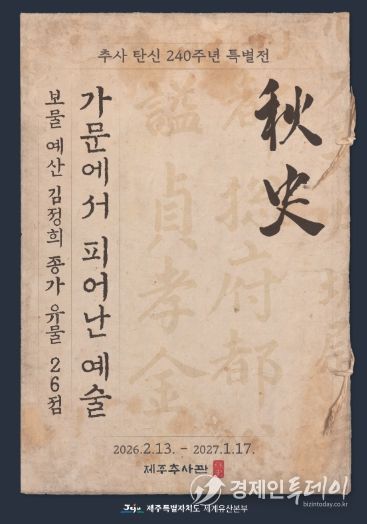 추사 탄신 240주년 특별전
秋史
가문에서 피어난 예술
보물 예산 김정희 종가 유물 26점
2026.2.13. - 2027.1.17.
제주추사관
Jeju 제주특별자치도 세계유산본부
경제인투데이
bizintoday.co.kr
諡貞孝金
府都